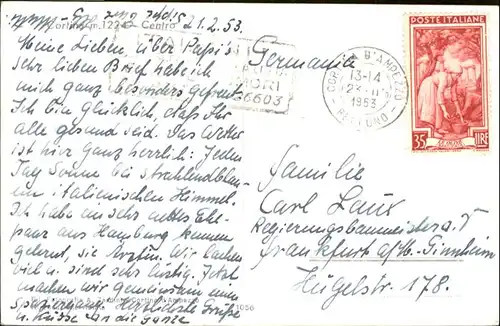 21.2.53.
Cortina m. 1224 - Centro
Meine Lieben, über Papi's
sehr lieben Brief habe ich
mich ganz besonders gefreut.
Ich bin glücklich, daß Ihr
alle gesund seid. Das Wetter
ist hier ganz herrlich: Jeden
Tag Sonne bei strahlendblau-
em italienischen Himmel.
Ich habe ein sehr nettes Ehe-
paar aus Hamburg kennen
gelernt, sie Ärztin. Wir lachen
viel u. sind sehr lustig. Jetzt
machen wir gemeinsam einen
Spaziergang. Herzlichste Grüße
u. Küsse an die ganze
1056
6603
Germania
CORTINA D'AMPEZZO
13-14
1953
BELLUNO
POSTE ITALIANE
35 LIRE
Familie
Carl Laux
Regierungsbaumeister a. D
Frankfurt a/M.-Ginnheim
Hügelstr. 178.